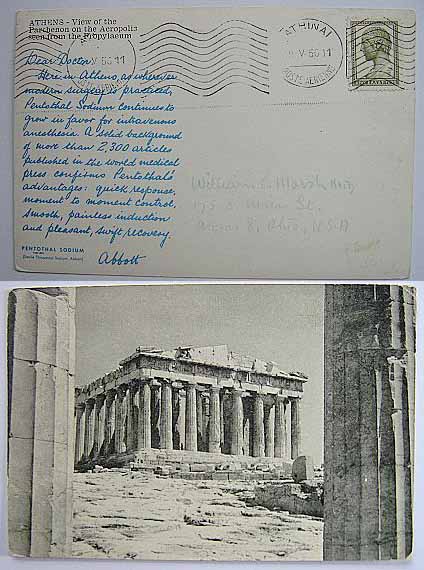 ATHENS - View of the
Parthenon on the Acropolis
seen from the Propylaeum
ΑΘΗΝΑΙ
V 56 11
Dear Doctor:
Here in Athens, as wherever
modern surgery is practiced,
Pentothal Sodium continues to
grow in favor for intravenous
anesthesia. A solid background
of more than 2,300 articles
published in the world medical
press confirms Pentothal's
advantages: quick response,
moment to moment control,
smooth, painless induction
and pleasant, swift recovery.
Abbott
PENTOTHAL SODIUM
(Sterile Thiopental Sodium, Abbott)
William Marsh
175 S. Main St.
8, Ohio, U.S.A